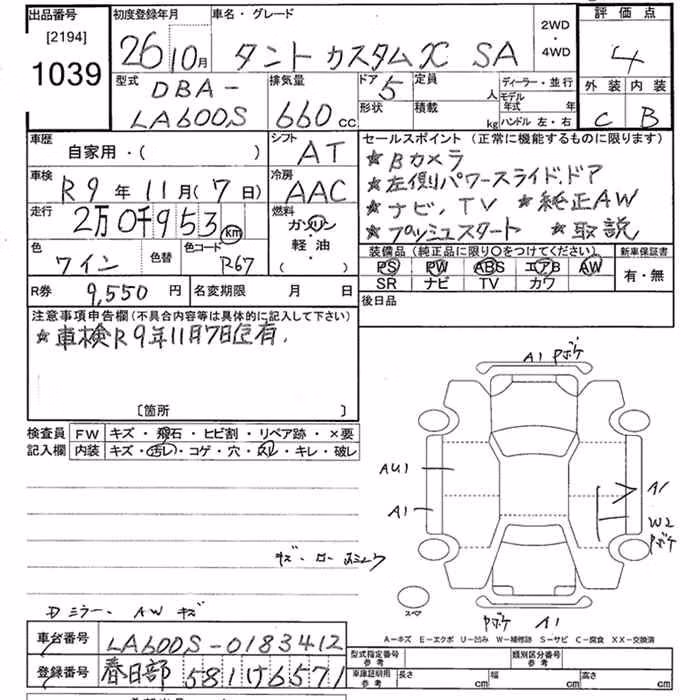 出品番号 初度登録年月 車名・グレード 評価点
[2194] 1039
26 10月 タント カスタムX SA 2WD・4WD 4
型式 排気量 ドア 5 定員 人 ディーラー・並行 外装 内装
DBA-LA600S 660cc 形状 積載 kg モデル年式 年 ハンドル 左・右 C B
車歴 シフト セールスポイント (正常に機能するものに限ります)
自家用・( ) AT ★Bカメラ
車検 冷房 ★左側パワースライドドア
R9年11月(7日) AAC ★ナビ、TV ★純正AW
走行 2万0千953km 燃料 ガソリン・軽油・( ) ★プッシュスタート ★取説
色 色替 色コード 装備品 (純正品に限り〇をつけてください。) 新車保証書
ワイン R67 PS PW ABS エアB AW 有・無
SR ナビ TV カワ
R券 9,550円 名変期限 月 日 後日品
注意事項申告欄(不具合内容等は具体的に記入して下さい)
★車検R9年11月7日迄有.
[箇所 ]
A1 Pボケ
検査員記入欄 FW キズ・飛石・ヒビ割・リペア跡・×要
内装 キズ・汚レ・コゲ・穴・スレ・キレ・破レ
AU1
A1 A1
W2 Pボケ
スペア
Dミラー、AW キズ Pボケ A1
A-キズ E-エクボ U-凹み W-補修跡 S-サビ C-腐食 XX-交換済
車台番号 LA600S-0183412 型式指定番号 参考 類別区分番号 参考
登録番号 春日部 581け6571 車庫証明用 参考 長さ cm 幅 cm 高さ cm